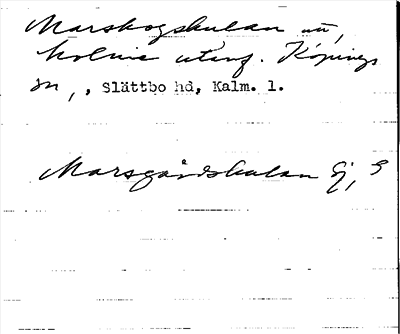 Marskogskulan nu,
holme utanf. Köpings
sn, , Slättbo hd, Kalm. l.
Marsgårdskulan Ej, S